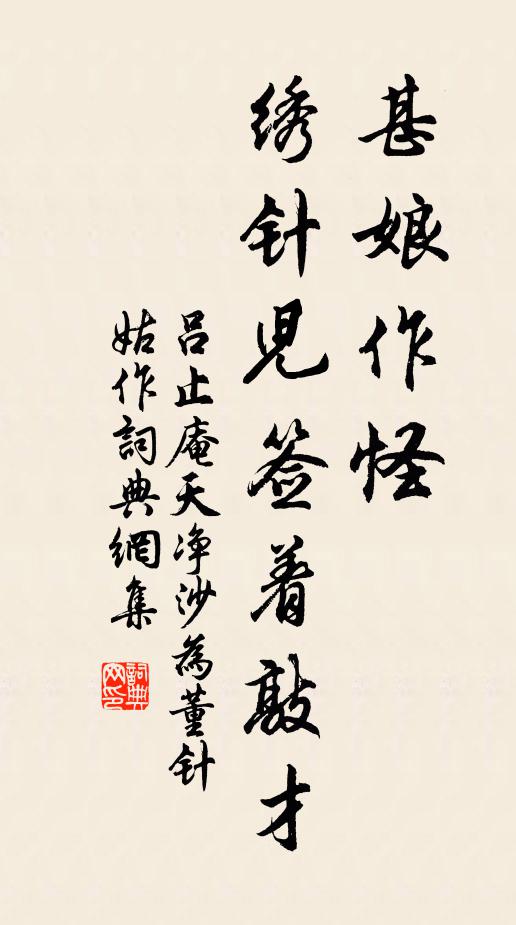 甚娘作怪
绣针児签着敲才
吕止庵天净沙為董针
姑作詞典網集
詞典
网印